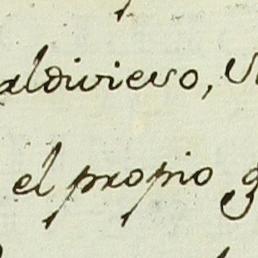 aldivieso,
el propio